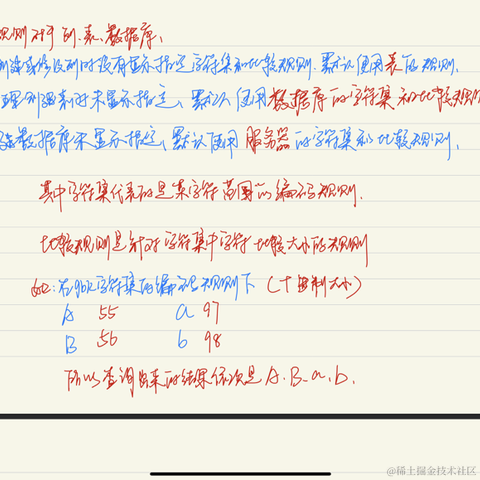 规则对于列、表、数据库、
创建或修改列时没有显示指定字符集和比较规则. 默认使用表的规则.
理创建表时未显示指定, 默认使用数据库的字符集和比较规则
建数据库未显示指定, 默认使用服务器的字符集和比较规则.
其中字符集代表的是某字符范围的编码规则.
比较规则是针对字符集中字符比较大小的规则
如: 在 字符集的编码规则下 (十进制大小)
A 55 a 97
B 56 b 98
所以查询出来的结果依次是A.B.a.b.
@稀土掘金技术社区